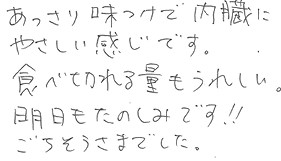 あっさり味つけで内臓に
やさしい感じです。
食べてかれる量もうれしい。
明日もたのしみです!!
ごちそうさまでした。